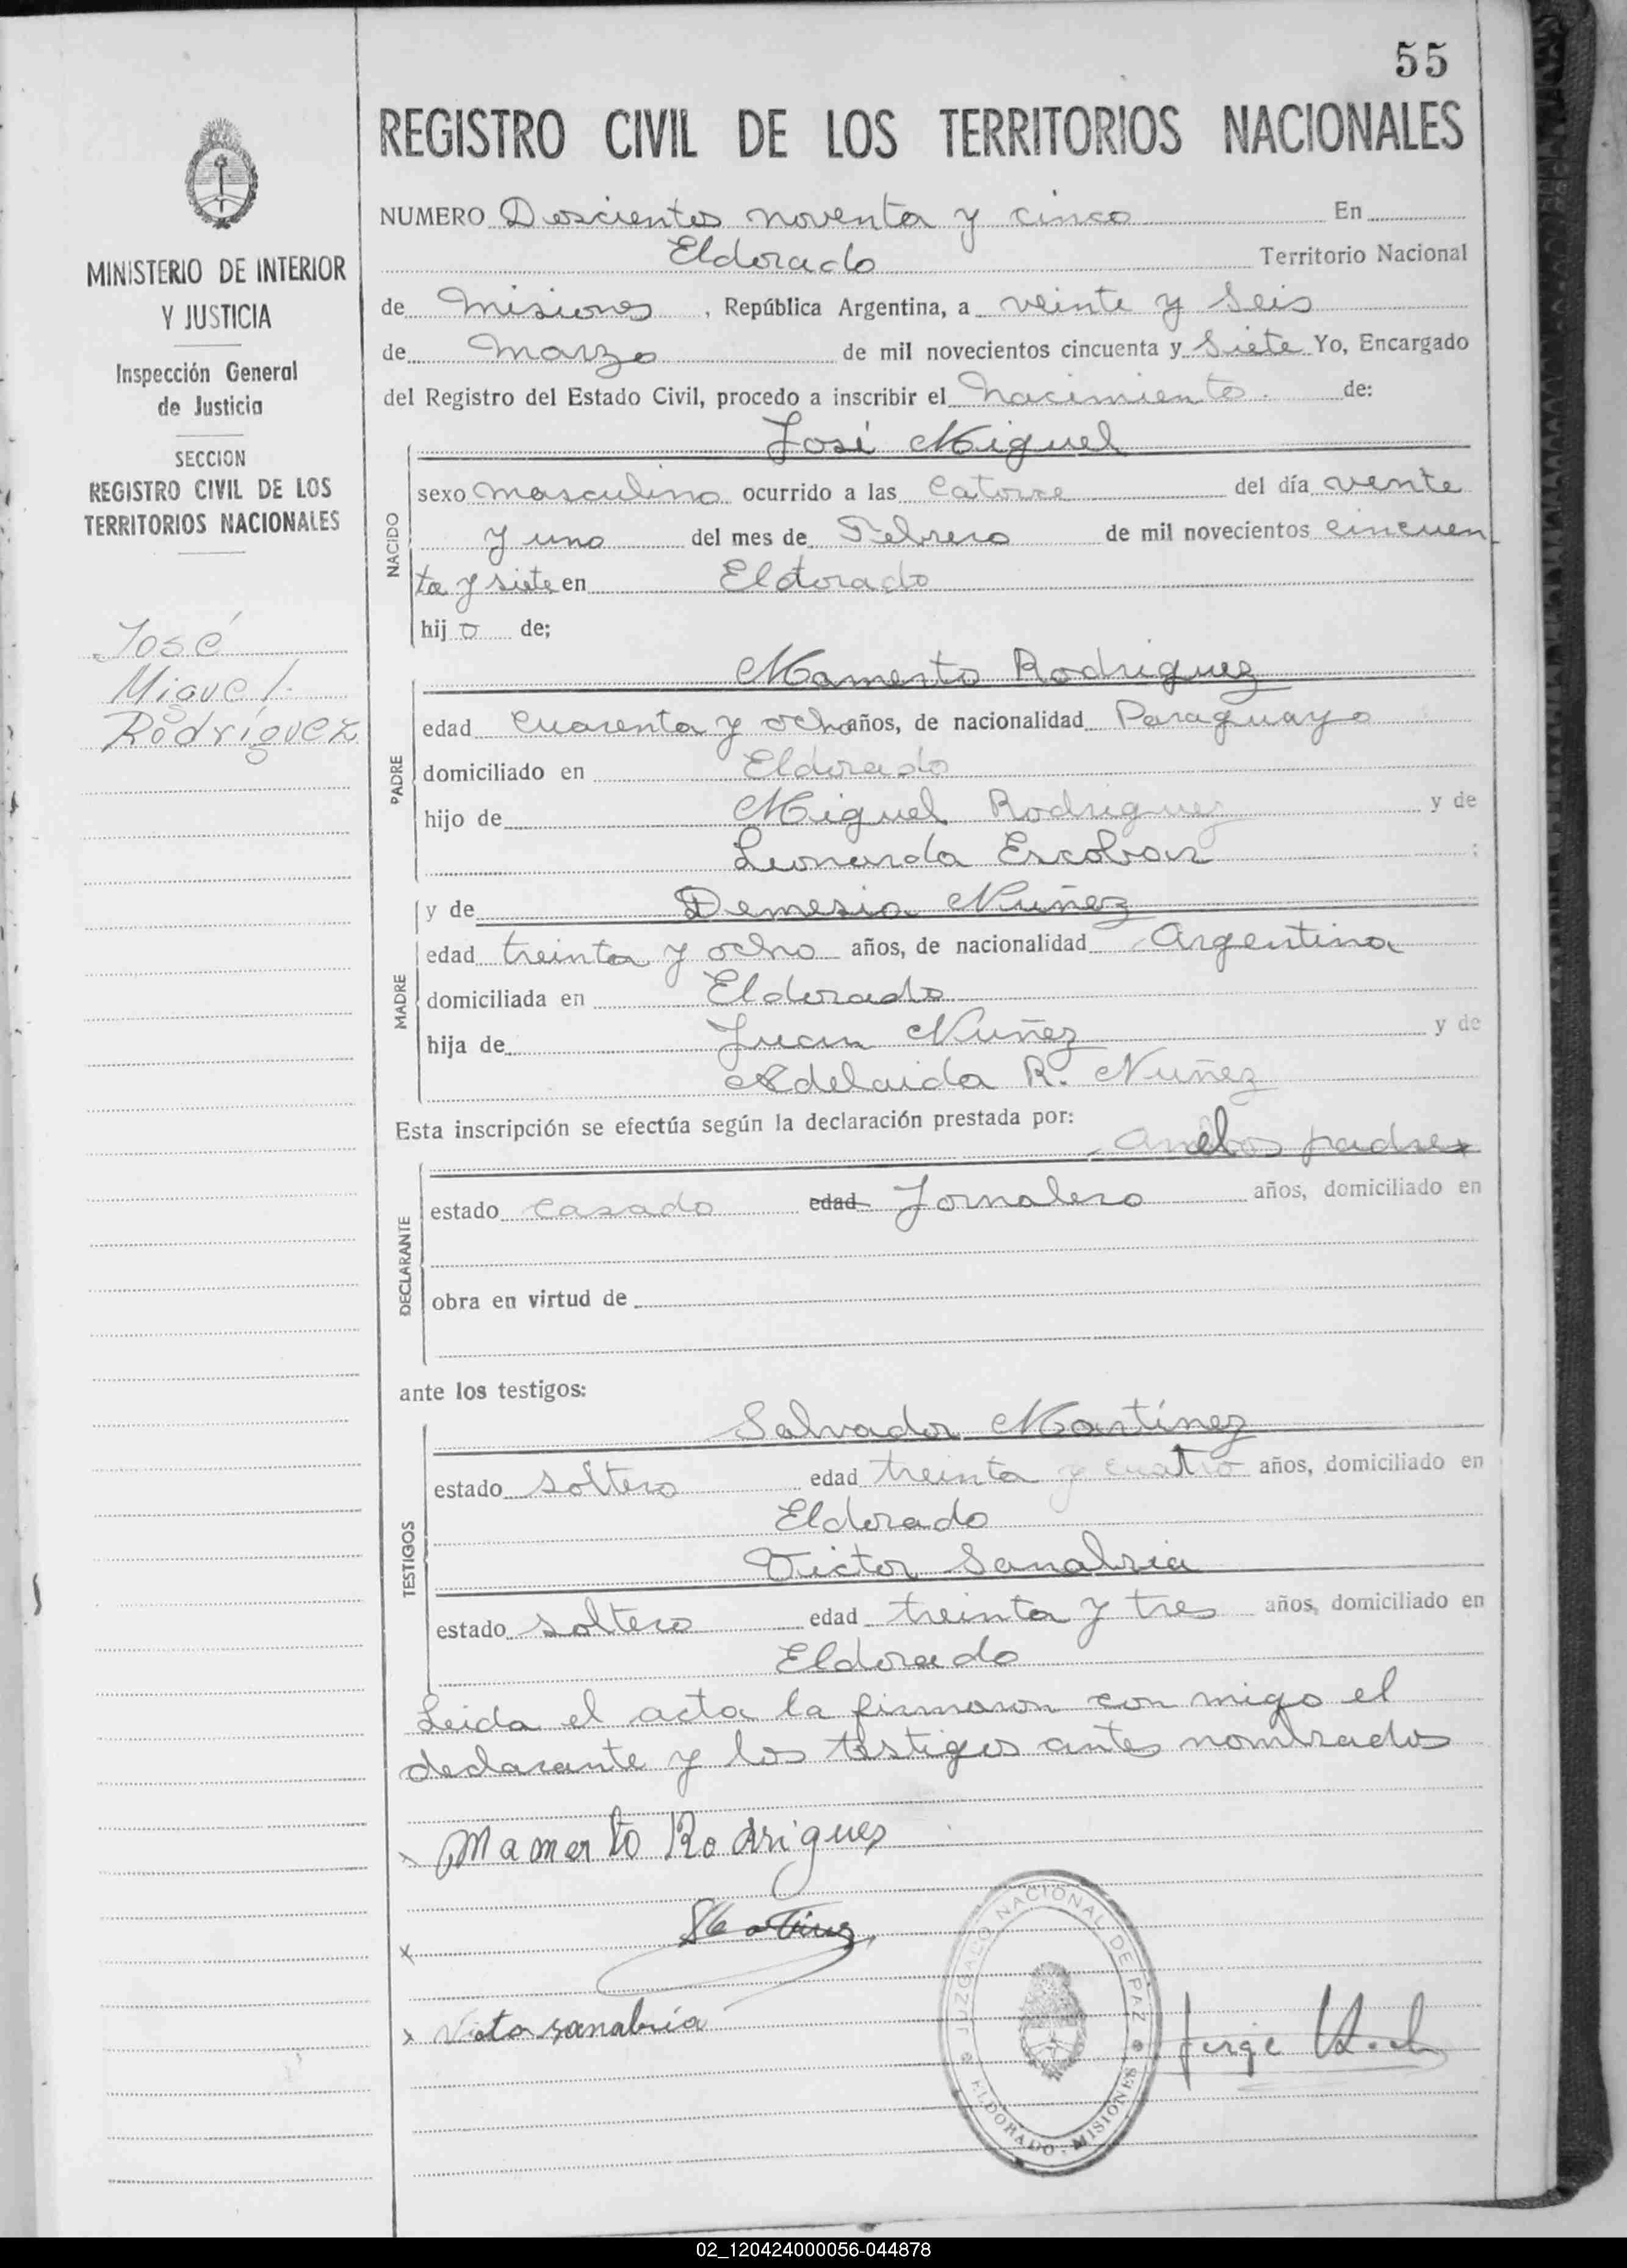 55
REGISTRO CIVIL DE LOS TERRITORIOS NACIONALES
MINISTERIO DE INTERIOR
Y JUSTICIA
Inspección General
de Justicia
SECCION
REGISTRO CIVIL DE LOS
TERRITORIOS NACIONALES
José
Miguel
Rodríguez
NUMERO Doscientos noventa y cinco En
Eldorado Territorio Nacional
de Misiones, República Argentina, a veinte y seis
de Marzo de mil novecientos cincuenta y Siete Yo, Encargado
del Registro del Estado Civil, procedo a inscribir el nacimiento. de:
NACIDO
José Miguel
sexo masculino ocurrido a las catorce del día vente
y uno del mes de Febrero de mil novecientos cincuen
ta y siete en Eldorado
hijo de;
PADRE
Mamerto Rodriguez
edad cuarenta y ocho años, de nacionalidad Paraguayo
domiciliado en Eldorado
hijo de Miguel Rodriguez y de
Leonarda Escobar ;
MADRE
y de Demesia Nuñez
edad treinta y ocho años, de nacionalidad Argentina
domiciliada en Eldorado
hija de Juan Nuñez y de
Adelaida R. Nuñez
Esta inscripción se efectúa según la declaración prestada por:
DECLARANTE
padre
estado casado edad Jornalero años, domiciliado en
obra en virtud de
ante los testigos:
TESTIGOS
Salvador Martínez
estado soltero edad treinta y cuatro años, domiciliado en
Eldorado
Victor Sanabria
estado soltero edad treinta y tres años, domiciliado en
Eldorado
Leida el acta la firmaron con migo el
declarante y los testigos antes nombrados
x Mamerto Rodrigues
x
x Victor sanabria
JUZGADO NACIONAL DE PAZ
ELDORADO - MISIONES
Jorge
02_120424000056-044878